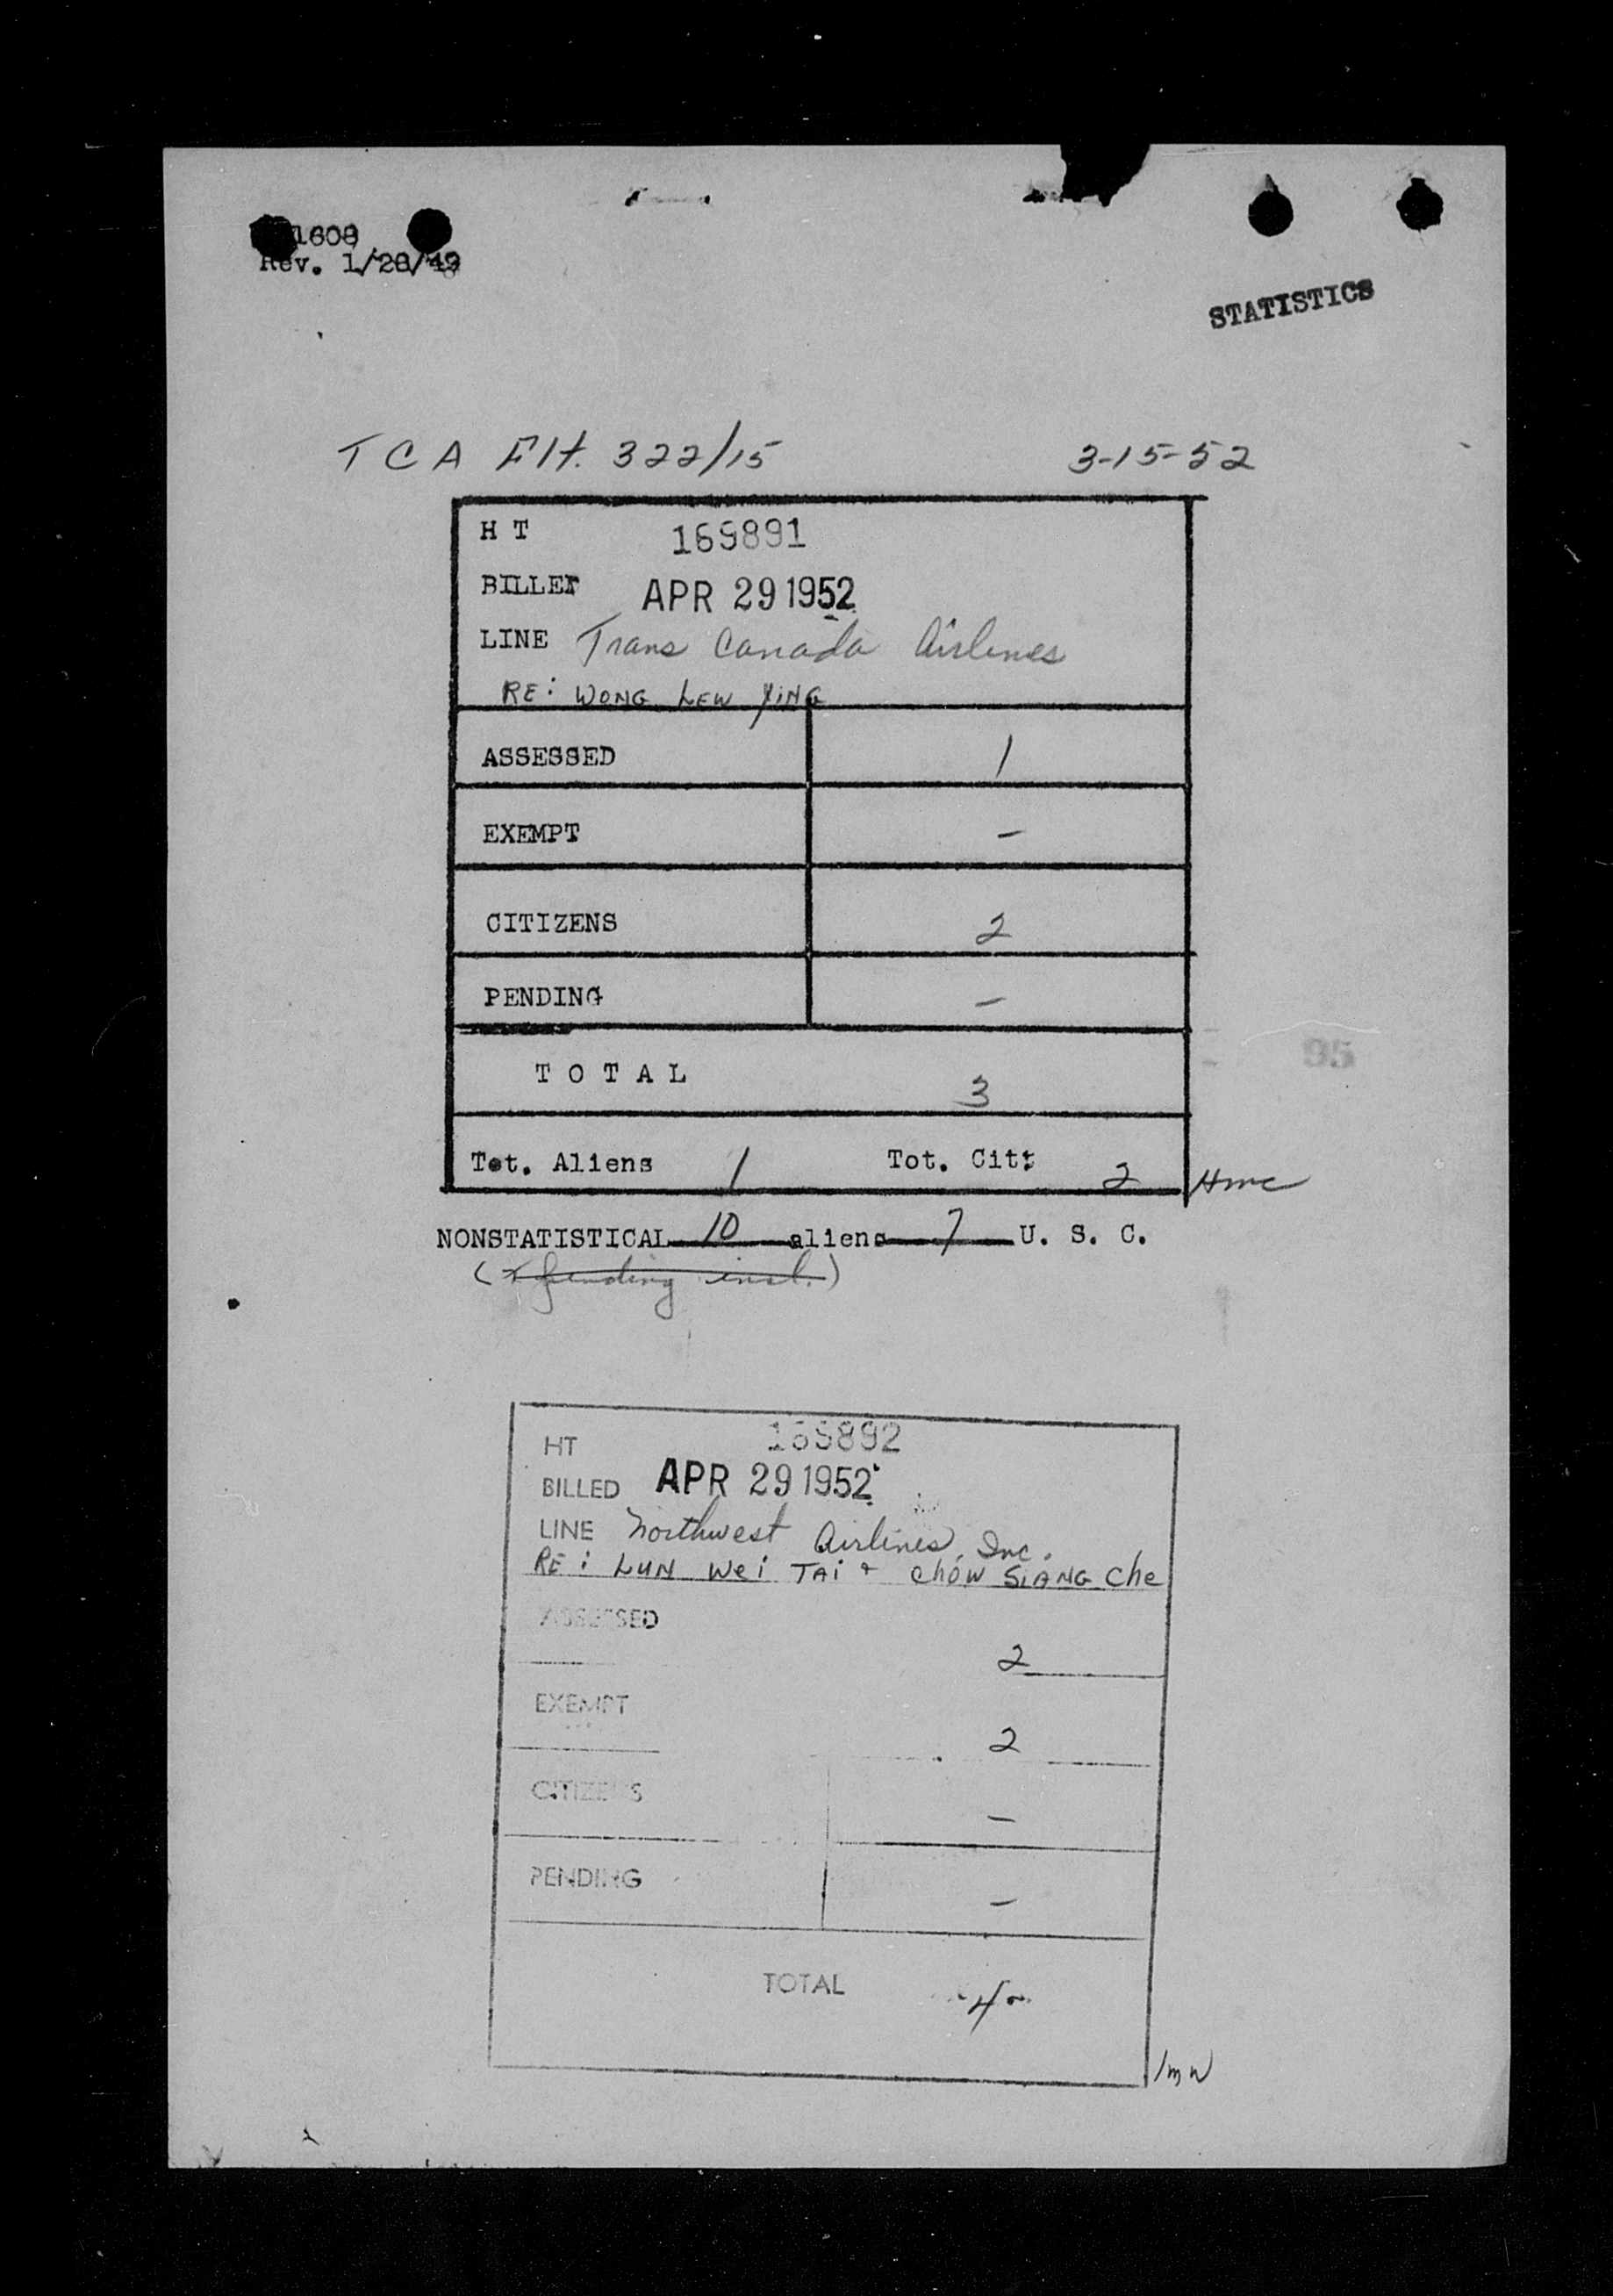 1608
Rev. 1/28/49
STATISTICS
TCA Flt. 322/15 3-15-52
H T 169891
BILLED APR 29 1952
LINE Trans Canada Airlines
RE: WONG LEW YING
ASSESSED 1
EXEMPT -
CITIZENS 2
PENDING -
T O T A L 3
Tot. Aliens 1 Tot. Cit: 2 Hmc
NONSTATISTICAL 10 aliens 7 U. S. C.
95
HT 169892
BILLED APR 29 1952
LINE Northwest Airlines, Inc.
RE: LUN Wei TAi + Chow SIANG Che
ASSESSED 2
EXEMPT 2
CITIZENS -
PENDING -
TOTAL 4
/mw